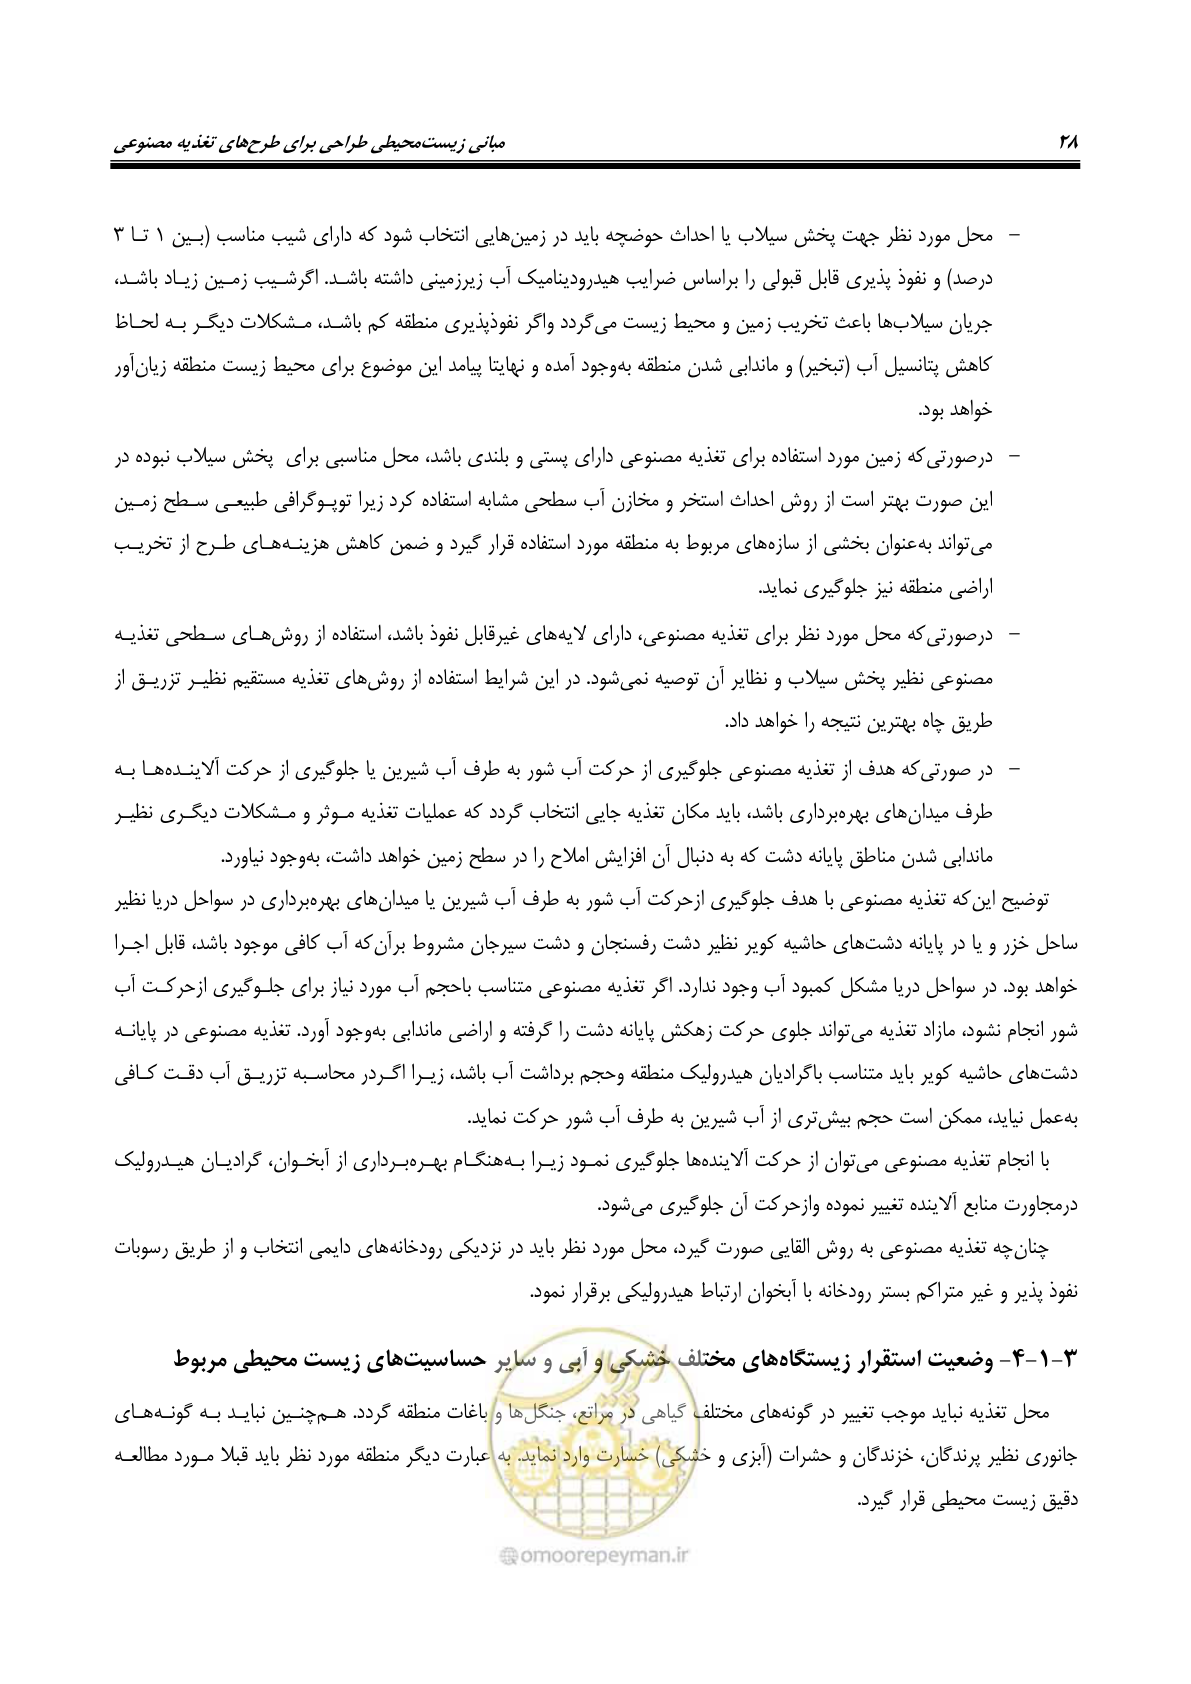 ۲۸ مبانی زیست‌محیطی طراحی برای طرح‌های تغذیه مصنوعی
– محل مورد نظر جهت پخش سیلاب یا احداث حوضچه باید در زمین‌هایی انتخاب شود که دارای شیب مناسب (بین ۱ تا ۳
درصد) و نفوذ پذیری قابل قبولی را براساس ضرایب هیدرودینامیک آب زیرزمینی داشته باشد. اگرشیب زمین زیاد باشد،
جریان سیلاب‌ها باعث تخریب زمین و محیط زیست می‌گردد واگر نفوذپذیری منطقه کم باشد، مشکلات دیگر به لحاظ
کاهش پتانسیل آب (تبخیر) و ماندابی شدن منطقه به‌وجود آمده و نهایتا پیامد این موضوع برای محیط زیست منطقه زیان‌آور
خواهد بود.
– درصورتی‌که زمین مورد استفاده برای تغذیه مصنوعی دارای پستی و بلندی باشد، محل مناسبی برای پخش سیلاب نبوده در
این صورت بهتر است از روش احداث استخر و مخازن آب سطحی مشابه استفاده کرد زیرا توپوگرافی طبیعی سطح زمین
می‌تواند به‌عنوان بخشی از سازه‌های مربوط به منطقه مورد استفاده قرار گیرد و ضمن کاهش هزینه‌های طرح از تخریب
اراضی منطقه نیز جلوگیری نماید.
– درصورتی‌که محل مورد نظر برای تغذیه مصنوعی، دارای لایه‌های غیرقابل نفوذ باشد، استفاده از روش‌های سطحی تغذیه
مصنوعی نظیر پخش سیلاب و نظایر آن توصیه نمی‌شود. در این شرایط استفاده از روش‌های تغذیه مستقیم نظیر تزریق از
طریق چاه بهترین نتیجه را خواهد داد.
– در صورتی‌که هدف از تغذیه مصنوعی جلوگیری از حرکت آب شور به طرف آب شیرین یا جلوگیری از حرکت آلاینده‌ها به
طرف میدان‌های بهره‌برداری باشد، باید مکان تغذیه جایی انتخاب گردد که عملیات تغذیه موثر و مشکلات دیگری نظیر
ماندابی شدن مناطق پایانه دشت که به دنبال آن افزایش املاح را در سطح زمین خواهد داشت، به‌وجود نیاورد.
توضیح این‌که تغذیه مصنوعی با هدف جلوگیری ازحرکت آب شور به طرف آب شیرین یا میدان‌های بهره‌برداری در سواحل دریا نظیر
ساحل خزر و یا در پایانه دشت‌های حاشیه کویر نظیر دشت رفسنجان و دشت سیرجان مشروط برآن‌که آب کافی موجود باشد، قابل اجرا
خواهد بود. در سواحل دریا مشکل کمبود آب وجود ندارد. اگر تغذیه مصنوعی متناسب باحجم آب مورد نیاز برای جلوگیری ازحرکت آب
شور انجام نشود، مازاد تغذیه می‌تواند جلوی حرکت زهکش پایانه دشت را گرفته و اراضی ماندابی به‌وجود آورد. تغذیه مصنوعی در پایانه
دشت‌های حاشیه کویر باید متناسب باگرادیان هیدرولیک منطقه وحجم برداشت آب باشد، زیرا اگردر محاسبه تزریق آب دقت کافی
به‌عمل نیاید، ممکن است حجم بیش‌تری از آب شیرین به طرف آب شور حرکت نماید.
با انجام تغذیه مصنوعی می‌توان از حرکت آلاینده‌ها جلوگیری نمود زیرا به‌هنگام بهره‌برداری از آبخوان، گرادیان هیدرولیک
درمجاورت منابع آلاینده تغییر نموده وازحرکت آن جلوگیری می‌شود.
چنان‌چه تغذیه مصنوعی به روش القایی صورت گیرد، محل مورد نظر باید در نزدیکی رودخانه‌های دایمی انتخاب و از طریق رسوبات
نفوذ پذیر و غیر متراکم بستر رودخانه با آبخوان ارتباط هیدرولیکی برقرار نمود.
۳-۱-۴- وضعیت استقرار زیستگاه‌های مختلف خشکی و آبی و سایر حساسیت‌های زیست محیطی مربوط
محل تغذیه نباید موجب تغییر در گونه‌های مختلف گیاهی در مراتع، جنگل‌ها و باغات منطقه گردد. هم‌چنین نباید به گونه‌های
جانوری نظیر پرندگان، خزندگان و حشرات (آبزی و خشکی) خسارت وارد نماید. به عبارت دیگر منطقه مورد نظر باید قبلا مورد مطالعه
دقیق زیست محیطی قرار گیرد.
امور پیمان
@omoorepeyman.ir